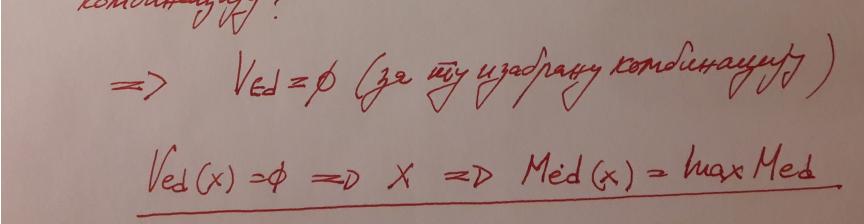 комбинацију?
=> VEd = ø (за ту изабрану комбинацију)
Ved(x) = ø => x => Med(x) = max Med